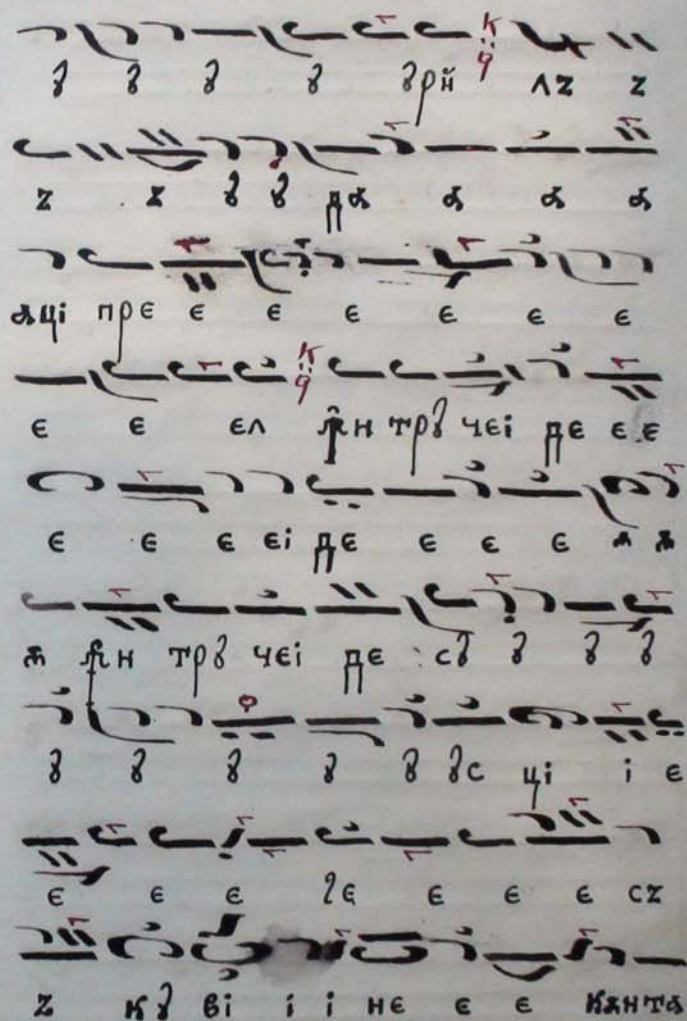 ꙋ ꙋ ꙋ ꙋ ꙋрй лъ ъ
ъ ъ ꙋ ꙋ да а а а
аці пре е е е е е е
е е ел ꙟн трꙋ чеі де е е
е е е еі де е е е ѫ ѫ
ѫ ꙟн трꙋ чеі де сꙋ ꙋ ꙋ ꙋ
ꙋ ꙋ ꙋ ꙋ ꙋ ꙋс ці і е
е е е е е е съ
ъ кꙋ ві і і не е е кѫнта